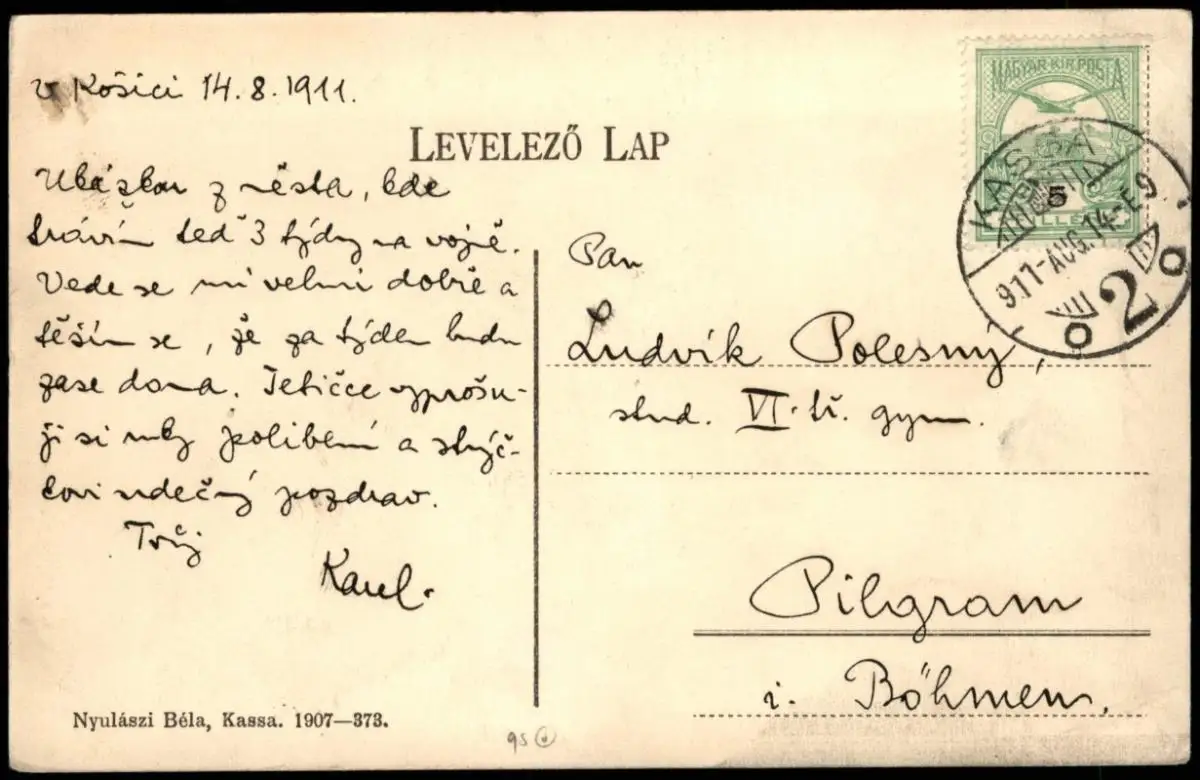 v Košici 14.8.1911.
LEVELEZŐ LAP
Ukázkou z města, kde
trávím teď 3 týdny na vojně.
Vede se mi velmi dobře a
těším se, že za týden budu
zase doma. Tetičce vyprošu-
ji si ruky políbení a strýč-
kovi srdečný pozdrav.
Tvůj
Karel.
Nyulászi Béla, Kassa. 1907—373.
MAGYAR KIR. POSTA
5
KASSA
911-AUG.14-E9
2
Pan
Ludvík Polesný,
stud. VI. tř. gym.
Pilgram
i. Böhmen.
95